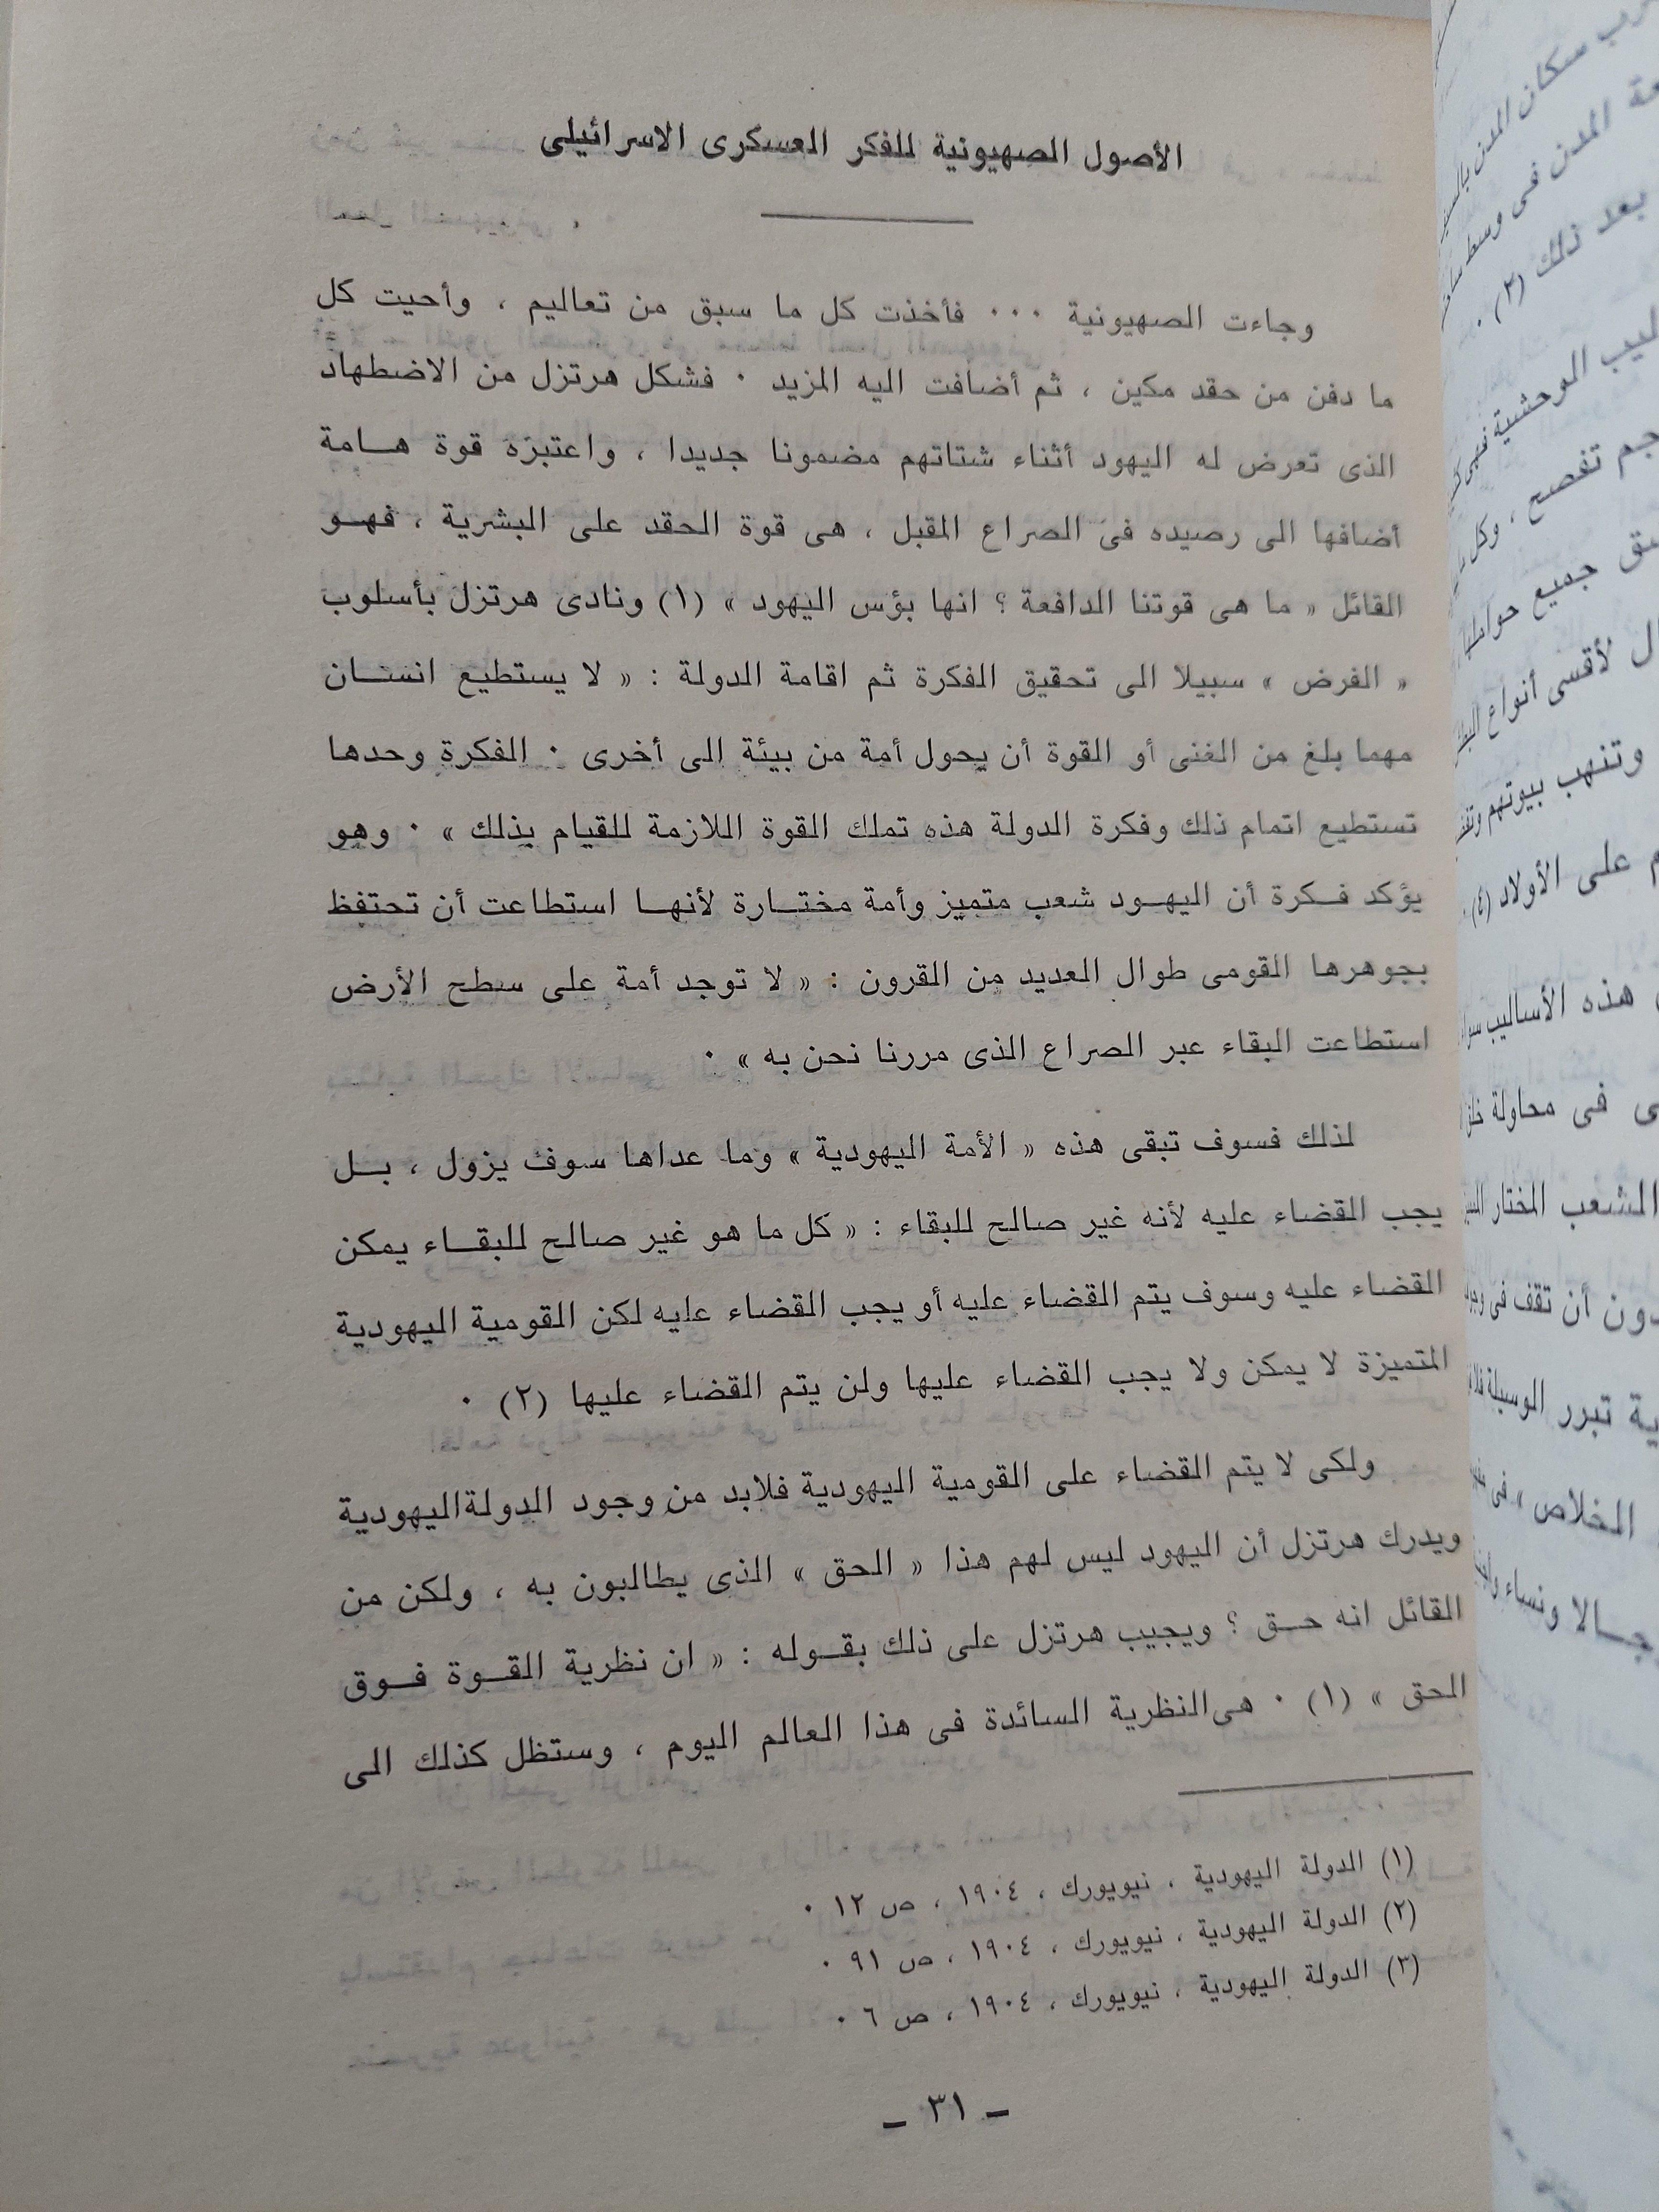 الأصول الصهيونية للفكر العسكرى الاسرائيلى
وجاءت الصهيونية ٠٠٠ فأخذت كل ما سبق من تعاليم ، وأحيت كل
ما دفن من حقد مكين ، ثم أضافت اليه المزيد ٠ فشكل هرتزل من الاضطهاد
الذى تعرض له اليهود أثناء شتاتهم مضمونا جديدا ، واعتبره قوة هــامة
أضافها الى رصيده فى الصراع المقبل ، هى قوة الحقد على البشرية ، فهــو
القائل « ما هى قوتنا الدافعة ؟ انها بؤس اليهود » (١) ونادى هرتزل بأسلوب
« الفرض » سبيلا الى تحقيق الفكرة ثم اقامة الدولة : « لا يستطيع انســان
مهما بلغ من الغنى أو القوة أن يحول أمة من بيئة الى أخرى ٠ الفكرة وحدها
تستطيع اتمام ذلك وفكرة الدولة هذه تملك القوة اللازمة للقيام بذلك » ٠ وهو
يؤكد فــكرة أن اليهــود شعب متميز وأمة مختــارة لأنهــا استطاعت أن تحتفظ
بجوهرها القومى طوال العديد من القرون : « لا توجد أمة على سطح الأرض
استطاعت البقاء عبر الصراع الذى مررنا نحن به » ٠
لذلك فسوف تبقى هذه « الأمة اليهودية » وما عداها سوف يزول ، بــل
يجب القضاء عليه لأنه غير صالح للبقاء : « كل ما هو غير صالح للبقــاء يمكن
القضاء عليه وسوف يتم القضاء عليه أو يجب القضاء عليه لكن القومية اليهودية
المتميزة لا يمكن ولا يجب القضاء عليها ولن يتم القضاء عليها (٢) ٠
ولكى لا يتم القضاء على القومية اليهودية فلابد من وجود الدولة اليهودية
ويدرك هرتزل أن اليهود ليس لهم هذا « الحق » الذى يطالبون به ، ولكن من
القائل انه حــق ؟ ويجيب هرتزل على ذلك بقــوله : « ان نظرية القــوة فــوق
الحق » (١) ٠ هى النظرية السائدة فى هذا العالم اليوم ، وستظل كذلك الى
(١) الدولة اليهودية ، نيويورك ، ١٩٠٤ ، ص ١٢ ٠
(٢) الدولة اليهودية ، نيويورك ، ١٩٠٤ ، ص ٩١ ٠
(٣) الدولة اليهودية ، نيويورك ، ١٩٠٤ ، ص ٦ ٠
ــ ٣١ ــ
سكان المدن
المدن فى وسط
بعد ذلك (٢) ٠
الوحشية
تفصح ، وكل
جميع
لأقسى أنواع
وتنهب بيوتهم
على الأولاد (٤) ٠
هذه الأساليب
فى محاولة
الشعب المختار
أن تقف فى
تبرر الوسيلة
الخلاص » فى
ونساء